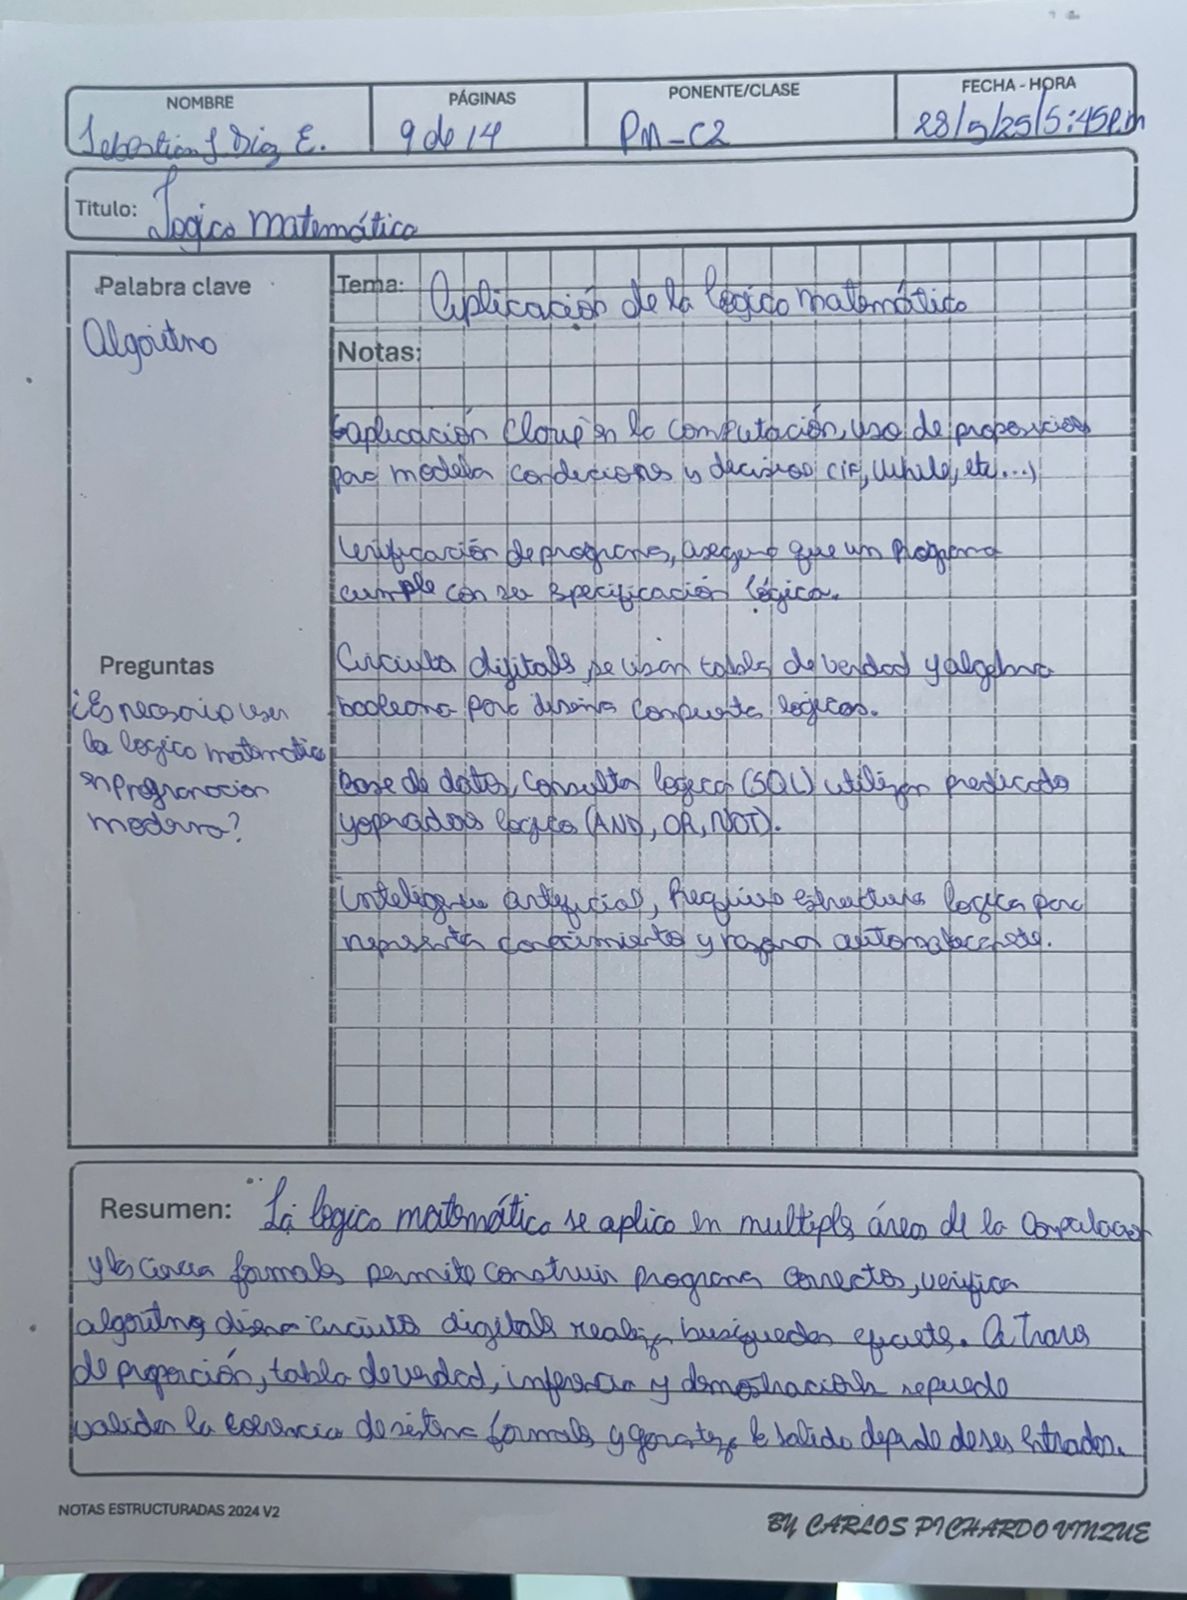 NOMBRE
PÁGINAS
PONENTE/CLASE
FECHA - HORA
Sebastian J Diaz E.
9 de 14
PM-C2
28/5/25/5:45pm
Titulo: Logico matemático
Palabra clave
Algoritmo
Tema: Aplicación de la logico matemático
Notas:
aplicación en la computación, uso de proposiciones
para modela condiciones y decisioes (if, while, etc...)
Verificación de programas, asegura que un programa
cumple con su specificación lógica.
Circuitos digitals, se usan tablas de verdad y algebra
booleana para diseña componentes logicos.
Preguntas
¿Es necesario usar
la logico matematico
en Programacion
moderna?
base de datos, consultas logica (SQL) utilizan predicados
y operadores logicos (AND, OR, NOT).
inteligencia artificial, Requiere estructuras logica para
representa conocimiento y razonar
Resumen: La logico matemático se aplico en multipls áreas de la Computacion
y las ciencia formals permite construir programa correctos, verifica
algoritmos diseña circuitos digitals realiza busquedas eficiets. A traves
de proporción, tabla de verdad, inferencia y demostracions se puede
validar la coerencia de sistema formals y garatiza la salida depnde de ses entradas.
NOTAS ESTRUCTURADAS 2024 V2
BY CARLOS PICHARDO VINZUE